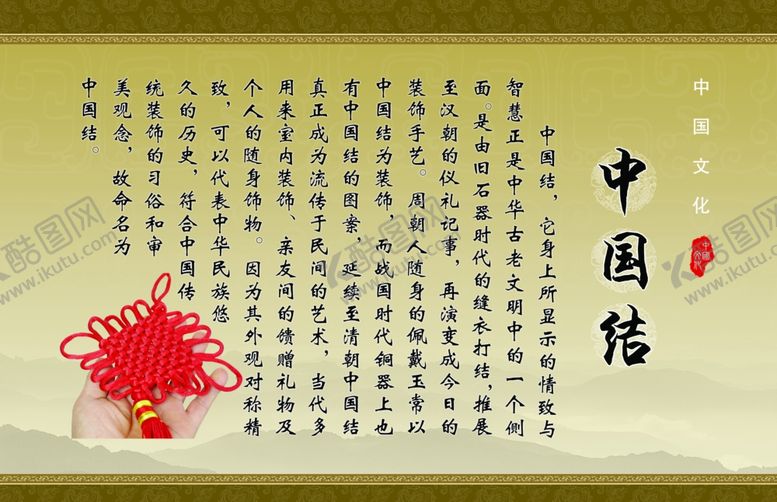 中国文化
中国文化
中国结
中国结，它身上所显示的情致与
智慧正是中华古老文明中的一个侧
面。是由旧石器时代的缝衣打结，推展
至汉朝的仪礼记事，再演变成今日的
装饰手艺。周朝人随身的佩戴玉常以
中国结为装饰，而战国时代铜器上也
有中国结的图案，延续至清朝中国结
真正成为流传于民间的艺术，当代多
用来室内装饰、亲友间的馈赠礼物及
个人的随身饰物。因为其外观对称精
致，可以代表中华民族悠
久的历史，符合中国传
统装饰的习俗和审
美观念，故命名为
中国结。
酷图网
www.ikutu.com
酷图网
www.ikutu.com
酷图网
www.ikutu.com